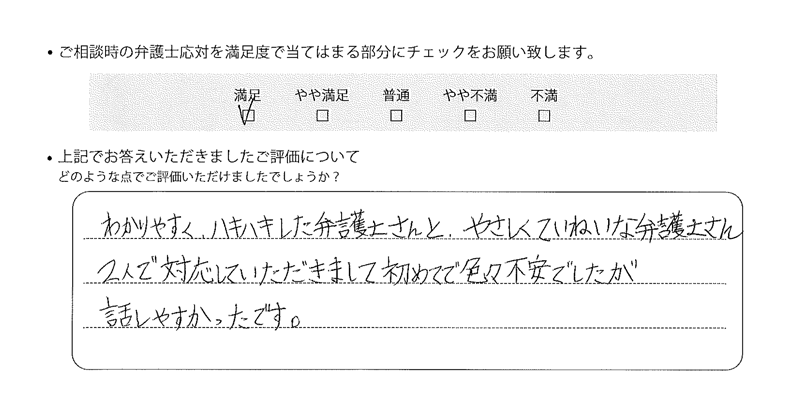 • ご相談時の弁護士応対を満足度で当てはまる部分にチェックをお願い致します。
満足 やや満足 普通 やや不満 不満
• 上記でお答えいただきましたご評価について
どのような点でご評価いただけましたでしょうか?
わかりやすく、ハキハキした弁護士さんと、やさしくていねいな弁護士さん
2人で対応していただきまして初めてで色々不安でしたが
話しやすかったです。